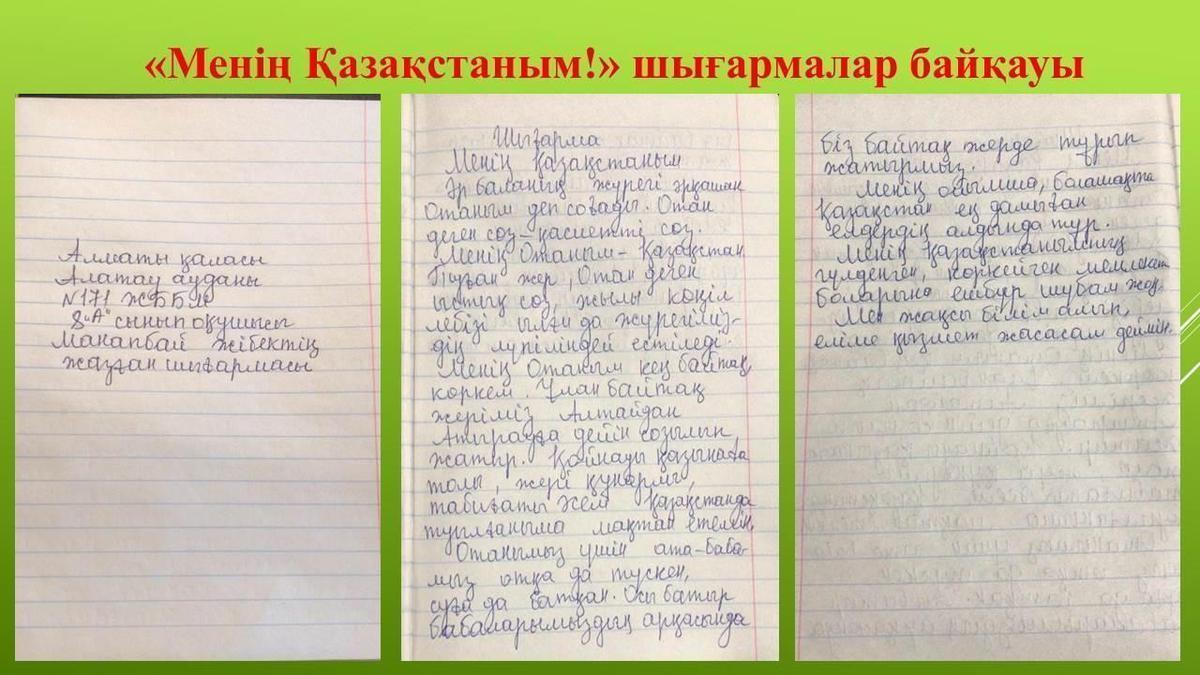 «Менің Қазақстаным!» шығармалар байқауы
Алматы қаласы
Алатау ауданы
№171 ЖББМ
8 "А" сынып оқушысы
Манапбай Жібектің
жазған шығармасы
Шығарма
Менің Қазақстаным
Әр баланың жүрегі әрқашан
Отаным деп соғады. Отан
деген сөз қасиетті сөз.
Менің Отаным - Қазақстан.
Туған жер, Отан деген
ыстық сөз, жылы көңіл
лебізі ылғи да жүрегіміз-
дің лүпіліндей естіледі.
Менің Отаным кең байтақ,
көркем. Ұлан байтақ
жеріміз Алтайдан
Атырауға дейін созылып
жатыр. Қойнауы қазынаға
толы, жері құнарлы,
табиғаты әсем Қазақстанда
туылғаныма мақтан етемін.
Отанымыз үшін ата-баба-
мыз отқа да түскен,
суға да батқан. Осы батыр
бабаларымыздың арқасында
біз байтақ жерде тұрып
жатырмыз.
Менің ойымша, болашақта
Қазақстан ең дамыған
елдердің алдында тұр.
Менің Қазақстанымның
гүлденген, көркейген мемлекет
боларына ешбір шүбәм жоқ.
Мен жақсы білім алып,
еліме қызмет жасасам деймін.